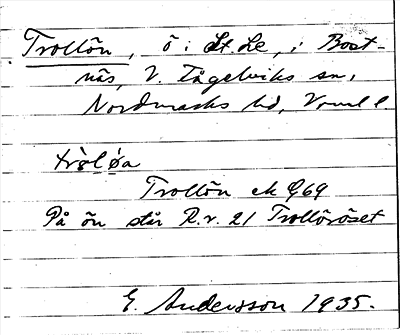 Trollön, ö i St. Le, i Bost-
näs, V. Fågelviks sn,
Nordmarks hd, Vrml l.
tròl ø̀a
Trollön ek G69
På ön står R.r. 21 Trollöröset
E. Andersson 1935.